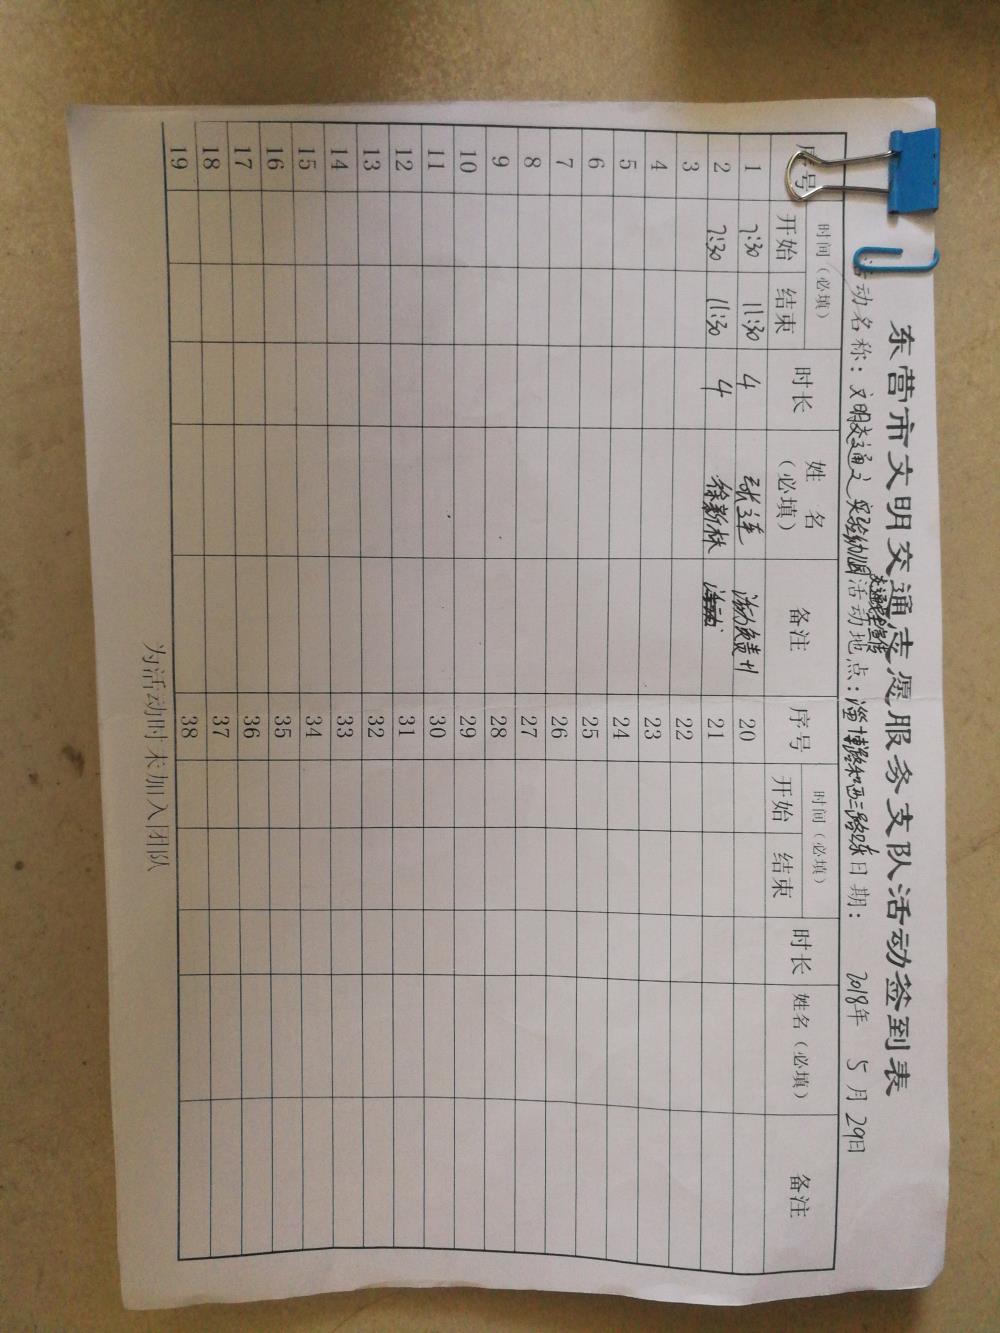 东营市文明交通志愿服务支队活动签到表
活动名称：文明交通之实验幼儿园 活动地点：淄博路和西三路 日期： 2018年 5月29日
序号 时间（必填） 时长 姓名（必填） 备注 序号 时间（必填） 时长 姓名（必填） 备注
开始 结束 开始 结束
1 7:30 11:30 4 20
2 7:30 11:30 4 徐新林 活动 21
3 22
4 23
5 24
6 25
7 26
8 27
9 28
10 29
11 30
12 31
13 32
14 33
15 34
16 35
17 36
18 37
19 38
为活动时未加入团队